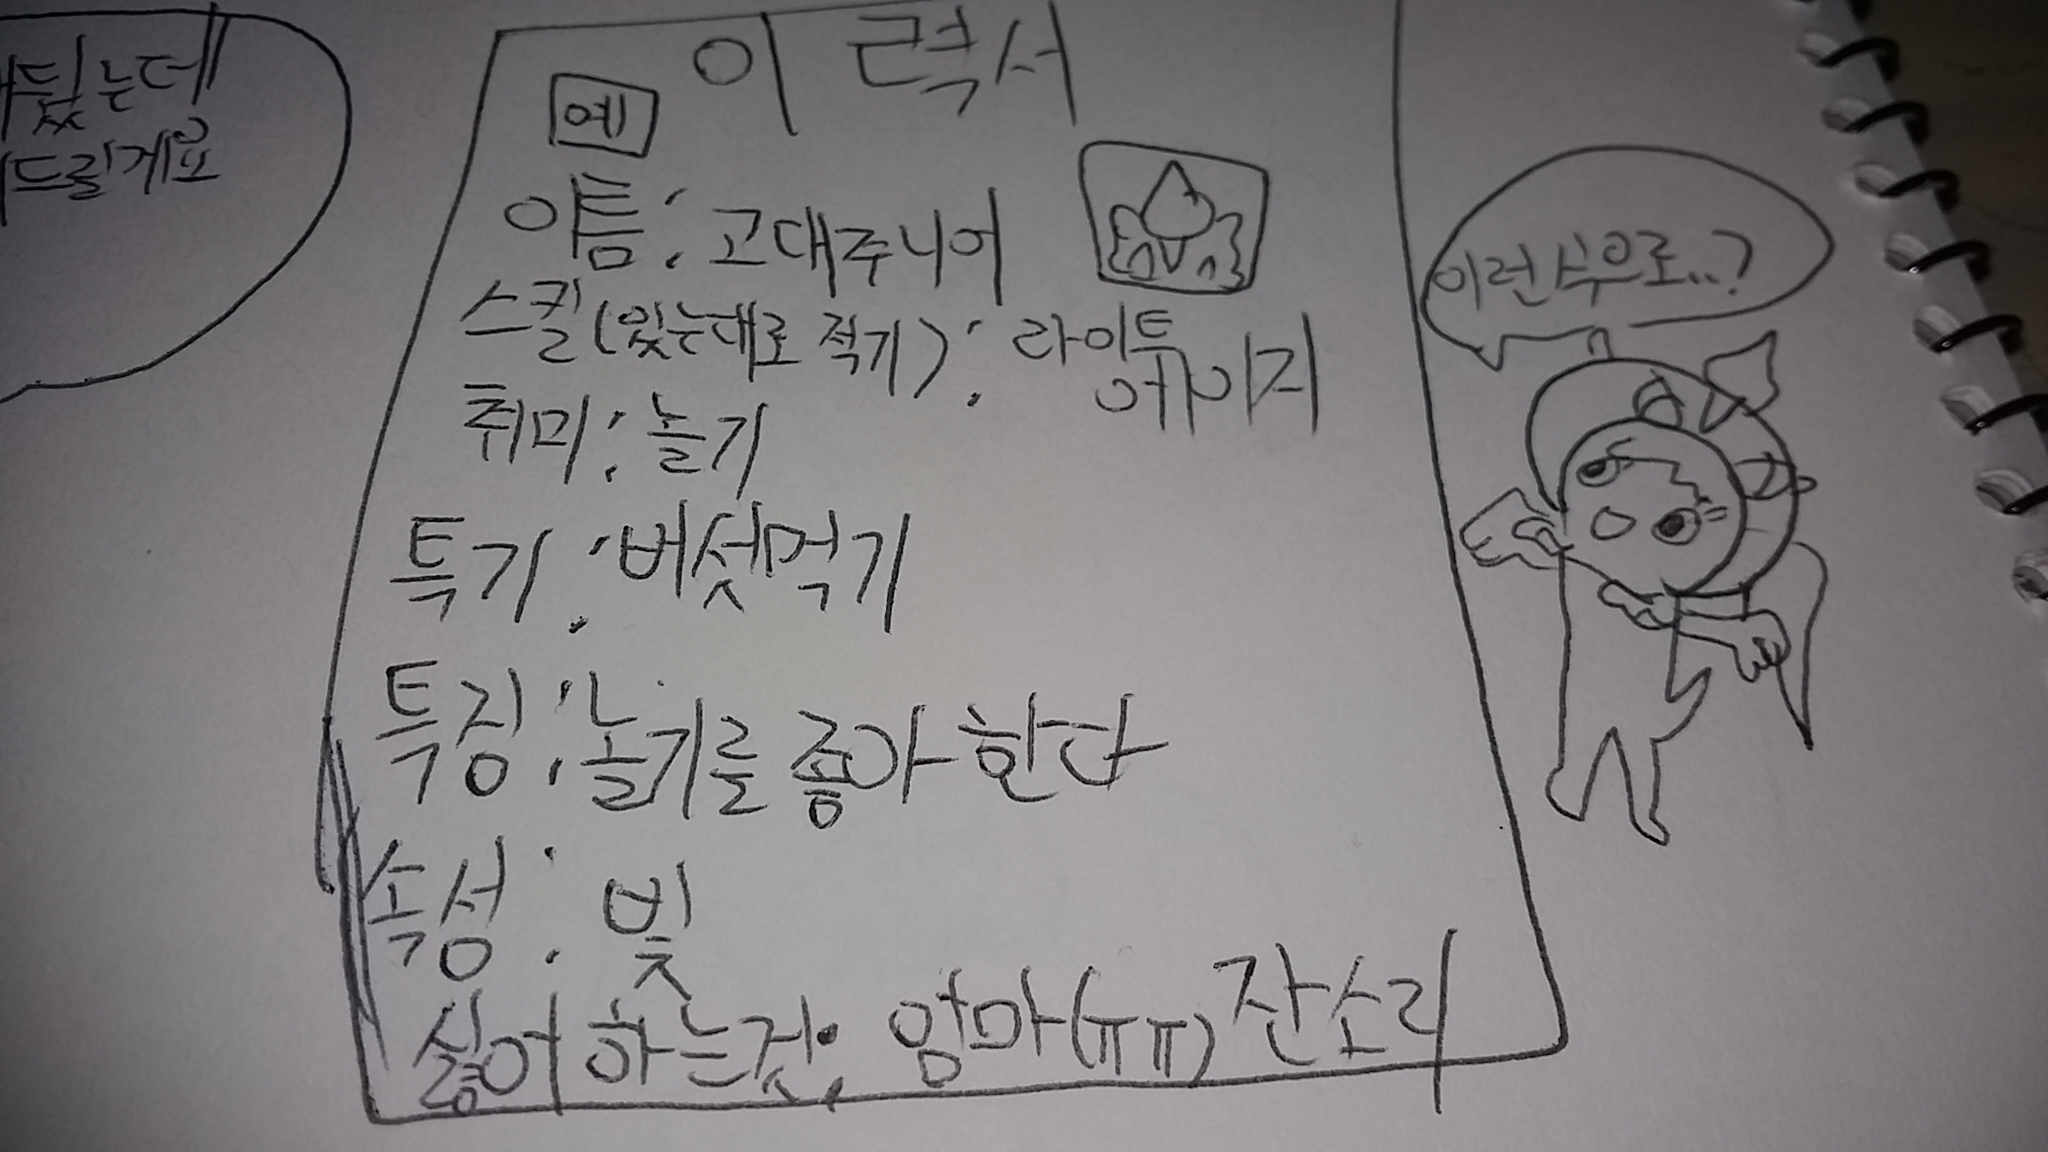 뒀는데
드릴게요
이력서
예
이름: 고대주니어
스킬(있는대로 적기): 라이트
웨이지
취미: 놀기
특기: 버섯먹기
특징: 놀기를 좋아 한다
속성: 빛
싫어 하는것: 엄마(ㅠㅠ) 잔소리
이런식으로..?